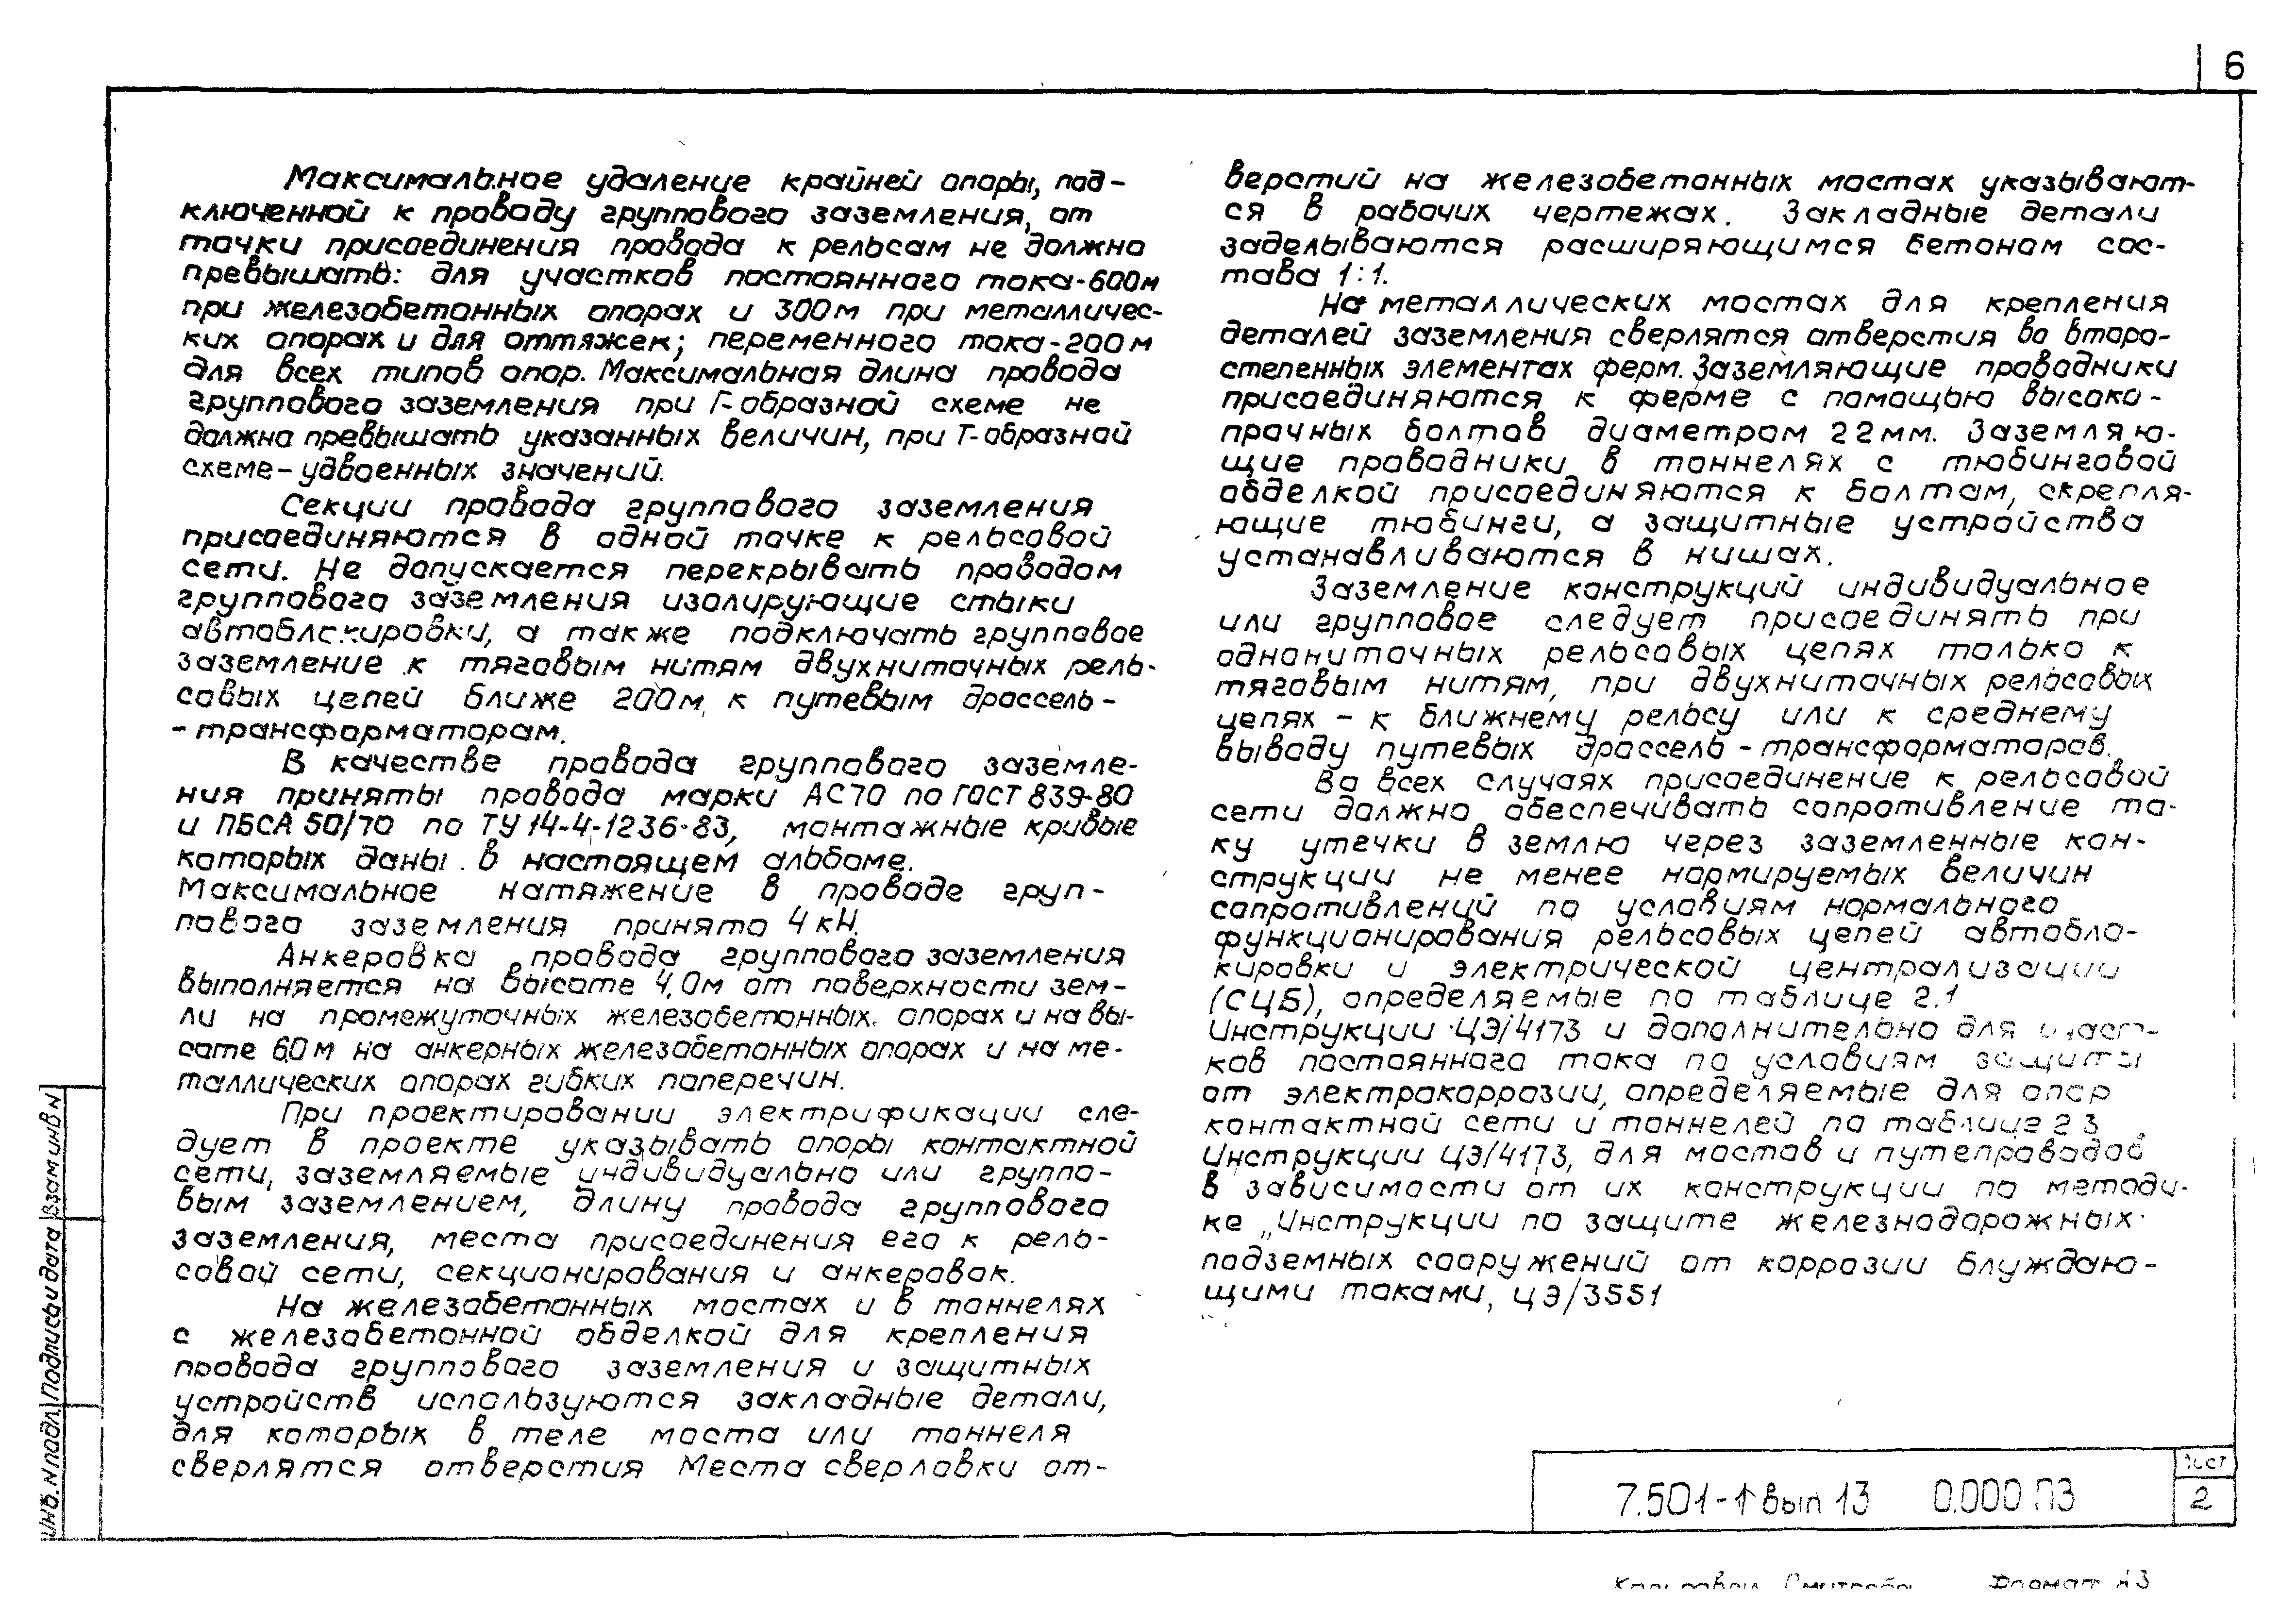 6
Максимальное удаление крайней опоры, под-
ключенной к проводу группового заземления, от
точки присоединения провода к рельсам не должно
превышать: для участков постоянного тока-600м
при железобетонных опорах и 300м при металличес-
ких опорах и для оттяжек; переменного тока-200м
для всех типов опор. Максимальная длина провода
группового заземления при Г-образной схеме не
должна превышать указанных величин, при Т-образной
схеме-удвоенных значений.
Секции провода группового заземления
присоединяются в одной точке к рельсовой
сети. Не допускается перекрывать проводом
группового заземления изолирующие стыки
автоблокировки, а также подключать групповое
заземление к тяговым нитям двухниточных рель-
совых цепей ближе 200м к путевым дроссель-
-трансформаторам.
В качестве провода группового заземле-
ния приняты провода марки АС70 по ГОСТ 839-80
и ПБСА 50/70 по ТУ 14-4-1236-83, монтажные кривые
которых даны в настоящем альбоме.
Максимальное натяжение в проводе груп-
пового заземления принято 4 кН.
Анкеровка провода группового заземления
выполняется на высоте 4,0м от поверхности зем-
ли на промежуточных железобетонных опорах и на вы-
соте 6.0м на анкерных железобетонных опорах и на ме-
таллических опорах гибких поперечин.
При проектировании электрификации сле-
дует в проекте указывать опоры контактной
сети, заземляемые индивидуально или группо-
вым заземлением, длину провода группового
заземления, места присоединения его к рель-
совой сети, секционирования и анкеровок.
На железобетонных мостах и в тоннелях
с железобетонной обделкой для крепления
провода группового заземления и защитных
устройств используются закладные детали,
для которых в теле моста или тоннеля
сверлятся отверстия Места сверловки от-
верстий на железобетонных мостах указывают-
ся в рабочих чертежах. Закладные детали
заделываются расширяющимся бетоном сос-
тава 1:1.
На металлических мостах для крепления
деталей заземления сверлятся отверстия во второ-
степенных элементах ферм. Заземляющие проводники
присоединяются к ферме с помощью высоко-
прочных болтов диаметром 22мм. Заземляю-
щие проводники в тоннелях с тюбинговой
обделкой присоединяются к болтам, скрепля-
ющие тюбинги, а защитные устройства
устанавливаются в нишах.
Заземление конструкций индивидуальное
или групповое следует присоединять при
однониточных рельсовых цепях только к
тяговым нитям, при двухниточных рельсовых
цепях - к ближнему рельсу или к среднему
выводу путевых дроссель-трансформаторов.
Во всех случаях присоединение к рельсовой
сети должно обеспечивать сопротивление то-
ку утечки в землю через заземленные кон-
струкции не менее нормируемых величин
сопротивлений по условиям нормального
функционирования рельсовых цепей автобло-
кировки и электрической централизации
(СЦБ), определяемые по таблице 2.1
Инструкции ЦЭ/4173 и дополнительно для участ-
ков постоянного тока по условиям защиты
от электрокоррозии, определяемые для опор
контактной сети и тоннелей по таблице 2 3
Инструкции ЦЭ/4173, для мостов и путепроводов
в зависимости от их конструкции по методи-
ке „Инструкции по защите железнодорожных
подземных сооружений от коррозии блуждаю-
щими токами, ЦЭ/3551
Инв. N подл. Подпись и дата Взам инв N
7.501-1 вып 13 0.000 ПЗ
Лист
2
Формат А3